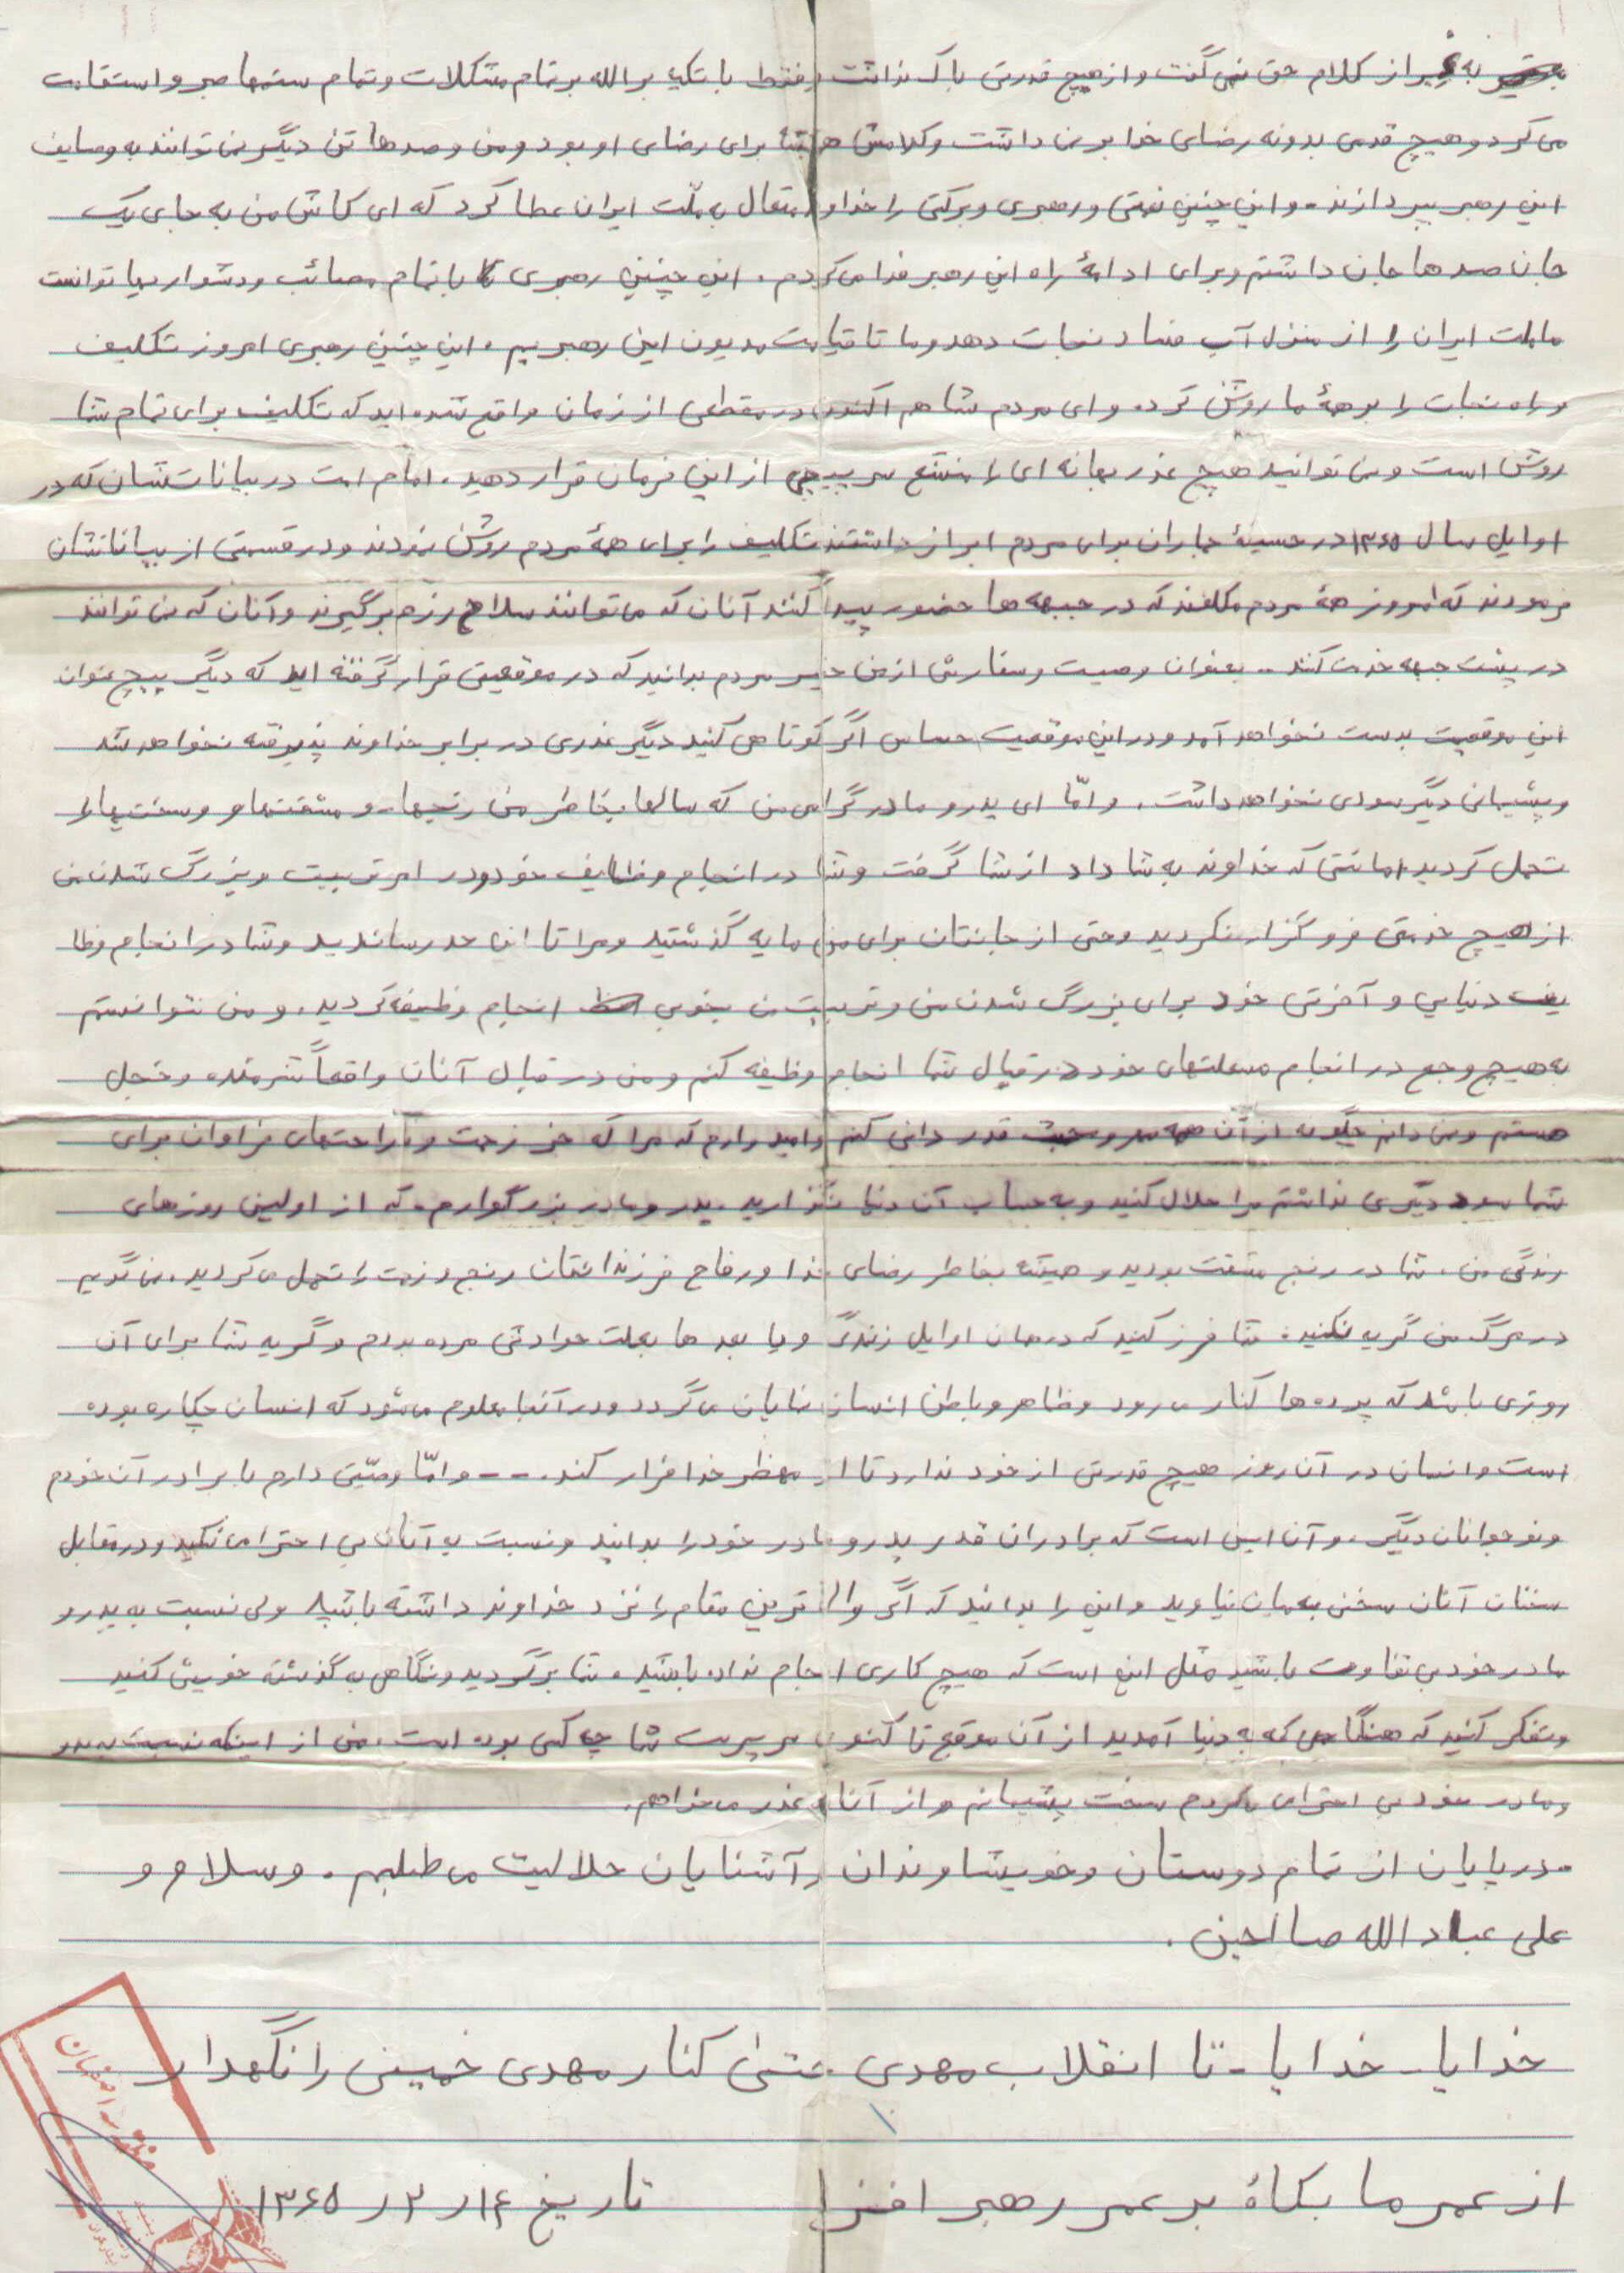 به غیر از کلام حق نمی گفت و از هیچ قدرتی باک نداشت و فقط با تکیه بر الله بر تمام مشکلات و تمام ستمها صبر و استقامت
می کرد و هیچ قدمی بدونه رضای خدا بر نمی داشت و کلامش همیشه برای رضای او بود و من و صدها تن دیگر نمی توانند به وصایف
این رهبر بپردازند. و این چنین نعمتی و رهبری و برکتی را خداوند متعال به ملّت ایران عطا کرد که ای کاش من به جای یک
جان صدها جان داشتم و برای ادامهٔ راه این رهبر فدا می کردم. این چنین رهبری با تمام مصائب و دشواریها توانست
ما ملت ایران را از منزل آب فساد نجات دهد و ما تا قیامت مدیون این رهبریم. این چنین رهبری امروز تکلیف
و راه نجات را بر همهٔ ما روشن کرده و ای مردم شما هم اکنون در مقطعی از زمان واقع شده اید که تکلیف برای تمام شما
روشن است و نمی توانید هیچ عذر بهانه ای را منشع سرپیچی از این فرمان قرار دهید. امام امت در بیانات شان که در
اوایل سال ۱۳۶۵ در حسینیهٔ جماران برای مردم ابراز داشتند تکلیف را برای همهٔ مردم روشن نمودند و در قسمتی از بیاناتشان
فرمودند که امروز همهٔ مردم مکلفند که در جبهه ها حضور پیدا کنند آنان که می توانند سلاح رزم برگیرند و آنان که نمی توانند
در پشت جبهه خدمت کنند.. بعنوان وصیت و سفارش از من حقیر مردم بدانید که در موقعیتی قرار گرفته اید که دیگر بهیچ عنوان
این موقعیت بدست نخواهد آمد و در این موقعیت حساس اگر کوتاهی کنید دیگر عذری در برابر خداوند پذیرفته نخواهد شد
و پشیمانی دیگر سودی نخواهد داشت. و امّا ای پدر و مادر گرامی من که سالها بخاطر من رنجها و مشقتها و سختیها را
تحمل کردید امانتی که خداوند به شما داد از شما گرفت و شما در انجام وظایف خود در امر تربیت و بزرگ شدن من
از هیچ خدمتی فروگزار نکردید و حتی از جانتان برای من مایه گذشتید و مرا تا این حد رساندید و شما در انجام وظا
یف دنیایی و آخرتی خود برای بزرگ شدن من و تربیت من بخوبی انجام وظیفه کردید. و من نتوانستم
به هیچ وجع در انجام مسئلتهای خود در قبال شما انجام وظیفه کنم و من در قبال آنان واقعاً شرمنده و خجل
هستم و نمی دانم چگونه از آن همه مهر و محبت قدر دانی کنم و امید وارم که مرا که جز زحمت و ناراحتهای فراوان برای
شما سود دیگری نداشتم مرا حلال کنید و به حساب آن دنیا نگذارید. پدر و مادر بزرگوارم. که از اولین روزهای
زندگی من، شما در رنج مشقت بودید و همیشه بخاطر رضای خدا و رفاح فرزندانتان رنج و زحمت را تحمل می کردید. می گویم
در مرگ من گریه نکنید. شما فرز کنید که در همان اوایل زندگی و یا بعد ها بعلت حوادثی مرده بودم و گریه شما برای آن
روزی باشد که پرده ها کنار می رود و ظاهر و باطن انسان نمایان می گردد و در آنجا معلوم می شود که انسان چکاره بوده
است و انسان در آن روز هیچ قدرتی از خود ندارد تا از محظر خدا فرار کند. -- و امّا وصیّتی دارم با برادر آن خودم
و نوجوانان دیگر. و آن این است که برادران قدر پدر و مادر خود را بدانید و نسبت به آنان بی احترامی نکنید و در مقابل
سخنان آنان سخنی به میان نیاوید و این را بدانید که اگر والا ترین مقام را نزد خداوند داشته باشید ولی نسبت به پدر و
مادر خود بی تفاوت باشید مثل این است که هیچ کاری انجام نداده باشید. شما برگردید و نگاهی به گذشته خویش کنید
و تفکر کنید که هنگامی که به دنیا آمدید از آن موقع تا کنون سرپرست شما چه کسی بوده است. من از اینکه نسبت به پدر
و مادر خود بی احترامی کردم سخت پشیمانم و از آنان عذر می خواهم.
و در پایان از تمام دوستان و خویشاوندان و آشنایان حلالیت می طلبم. وسلام و
علی عباد الله صالحین.
خدایا. خدایا. تا انقلاب مهدی حتی کنار مهدی خمینی را نگهدار
از عمر ما بکاهٔ بر عمر رهبر افزا
تاریخ ۱۴ر ۳ر ۱۳۶۵